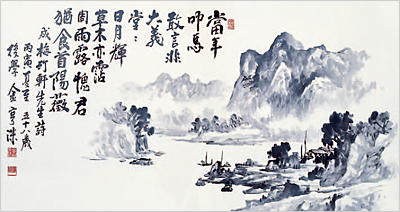 當年
叩馬
敢言非
大義
堂〻
日月輝
草木亦霑
周雨露愧君
猶食首陽薇
成梅竹軒先生詩
丙寅夏至五十八歲
後學金亨洙